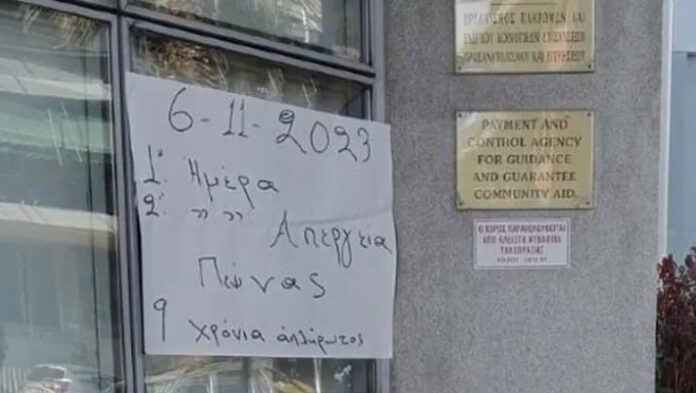 6-11-2023
1η Ημέρα
2 " " Απεργεία
Πείνας
9 χρόνια απλήρωτος
ΟΡΓΑΝΙΣΜΟΣ ΠΛΗΡΩΜΩΝ ΚΑΙ
ΕΛΕΓΧΟΥ ΚΟΙΝΟΤΙΚΩΝ ΕΝΙΣΧΥΣΕΩΝ
ΠΡΟΣΑΝΑΤΟΛΙΣΜΟΥ ΚΑΙ ΕΓΓΥΗΣΕΩΝ
PAYMENT AND
CONTROL AGENCY
FOR GUIDANCE
AND GUARANTEE
COMMUNITY AID.
Ο ΧΩΡΟΣ ΠΑΡΑΚΟΛΟΥΘΕΙΤΑΙ
ΑΠΟ ΚΛΕΙΣΤΟ ΚΥΚΛΩΜΑ
ΤΗΛΕΟΡΑΣΗΣ